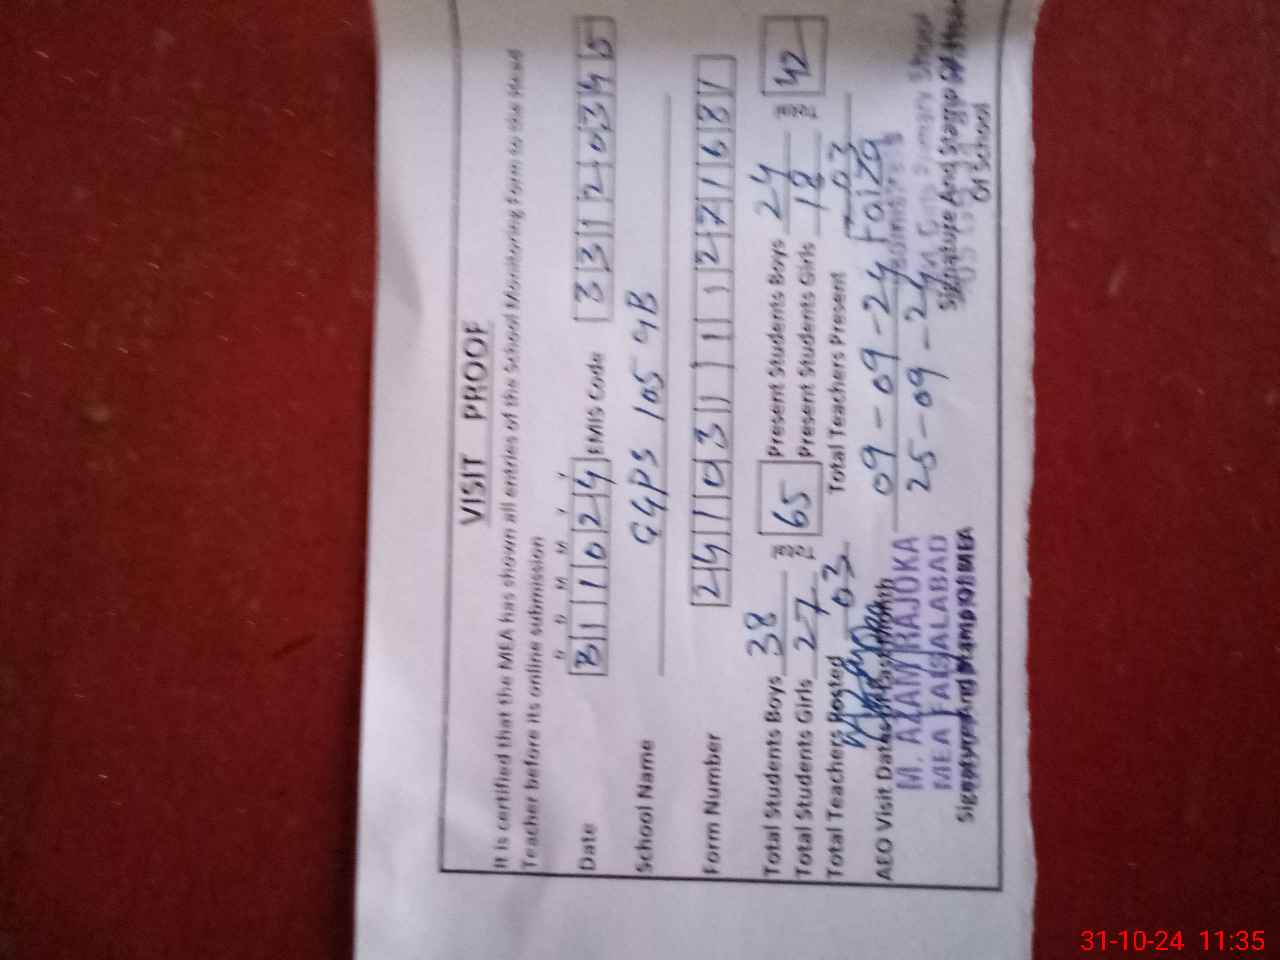 VISIT PROOF
It is certified that the MEA has shown all entries of the School Monitoring Form to the Head
Teacher before its online submission
D D M M Y Y
Date 311024 EMIS Code 33120345
School Name GGPS 105 GB
Form Number 241031111271681
Total Students Boys 38 65 Present Students Boys 24 42
Total Students Girls 27 Present Students Girls 18
Total Teachers Posted 03 Total Teachers Present 03
AEO Visit Dates Of Past Month 09-09-24 Faiza
25-09-24
M. AZAM RAJOKA
MEA FAISALABAD
Signature And Stamp Of MEA
Signature And Stamp Of
Of School
31-10-24 11:35